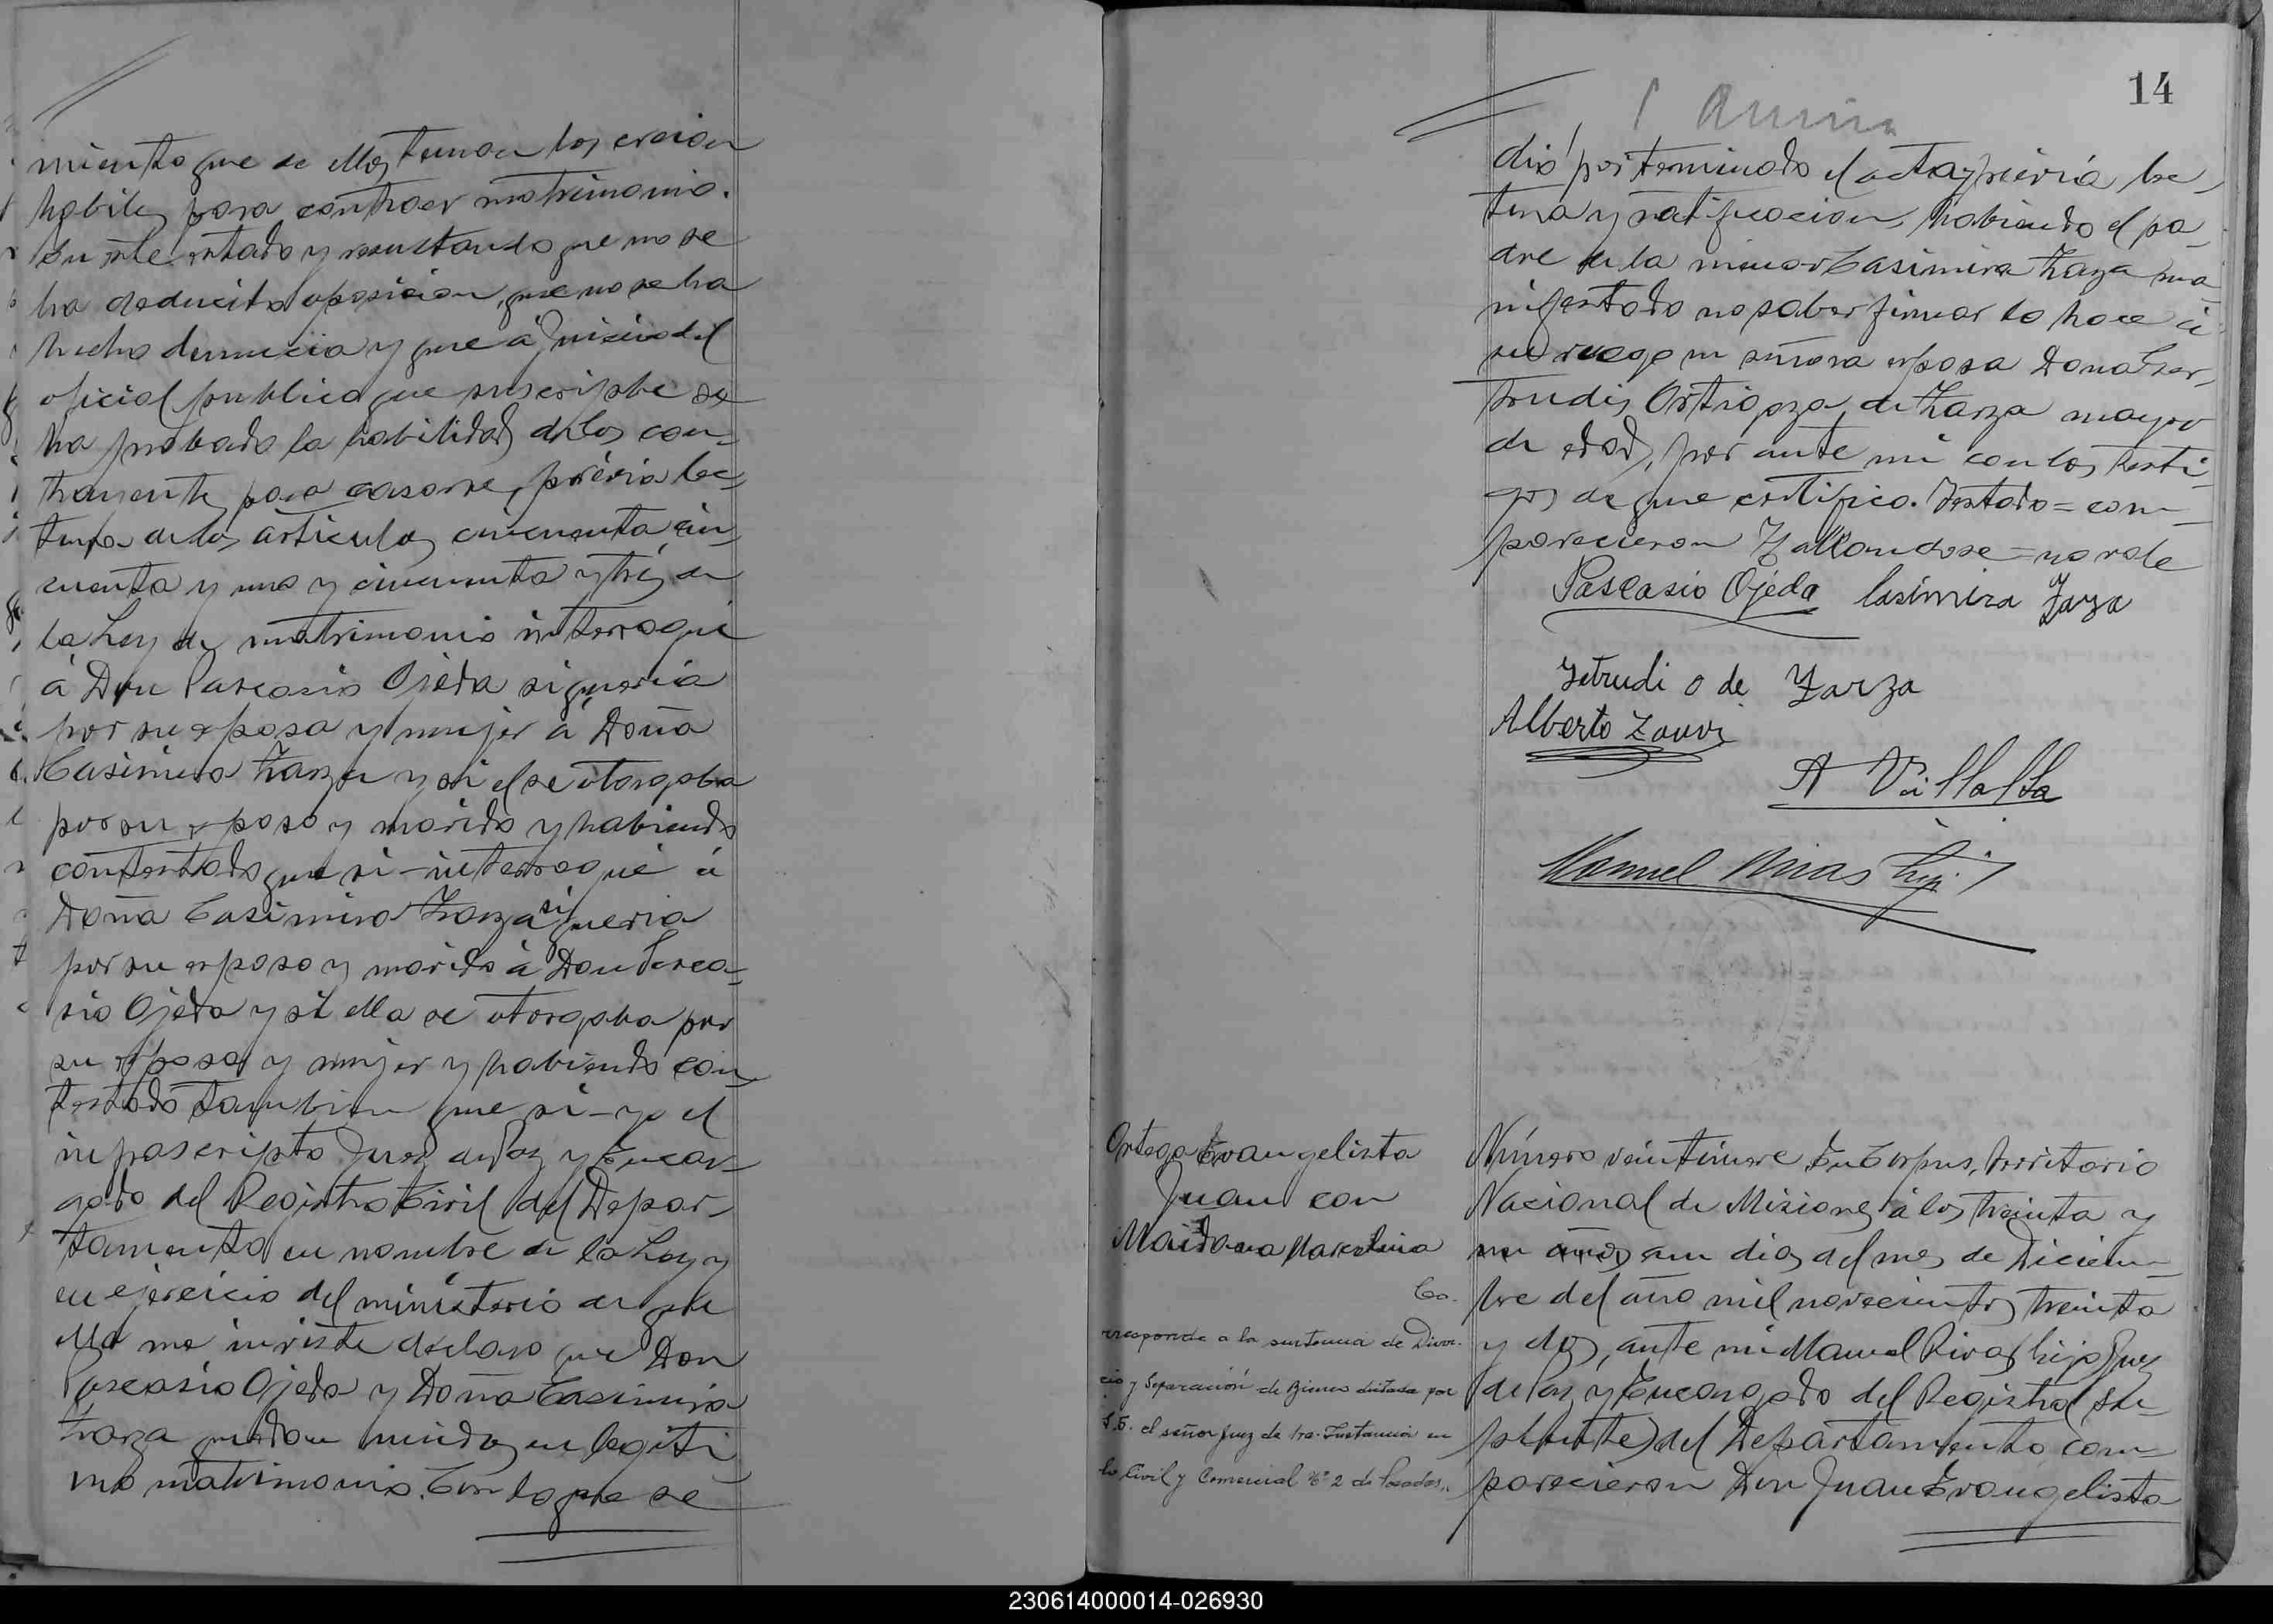 miento que de ellos tenian los creian
habiles para contraer matrimonio.
En este estado y resultando que no se
ha deducido oposicion, que no se ha
hecho denuncia y que á juicio del
oficial publico que suscripbe se
ha probado la habilidad de los con-
trayentes para casarse, prévia lec-
tura de los articulos cincuenta, cin-
cuenta y uno y cincuenta y tres de
la Ley de matrimonio interrogué
á Don Pascasio Ojeda si queria
por su esposa y mujer á Doña
Casimira Zarza y si el se otorgaba
por su esposo y marido y habiendo
contestado que si - interrogué á
Doña Casimira Zarza si queria
por su esposo y marido á Don Pasca-
sio Ojeda y si ella se otorgaba por
su esposa y mujer y habiendo con-
testado tambien que si - yo el
infrascripto Juez de Paz y Encar-
gado del Registro Civil del Depar-
tamento en nombre de la Ley y
en ejercicio del ministerio de que
ella me inviste declaro que Don
Pascasio Ojeda y Doña Casimira
Zarza quedan unidos en legiti
mo matrimonio. Con lo que se
14
dió por terminado el acta y prévia lec-
tura y ratificacion, habiendo el pa-
dre de la menor Casimira Zarza ma-
nifestado no saber firmar lo hace á
su ruego su señora esposa Doña Ger-
trudis Ortiagza de Zarza mayor
de edad, por ante mi con los testi-
gos de que certifico. Testado = com-
parecieron Hallandose = no vale
Pascasio Ojeda Casimira Zarza
Jetrudi O de Zarza
Alberto
A Villalba
Manuel Rivas hijo
Ortega Evangelista
Juan con
Maidana Marcelina
Co-
rresponde a la sentencia de Divor-
cio y Separación de Bienes dictada por
S.S. el señor juez de 1ra. Instancia en
lo Civil y Comercial Nº 2 de Posadas.
Número veintinueve En Corpus, territorio
Nacional de Misiones á los treinta y
un dias del mes de Diciem-
bre del año mil novecientos treinta
y dos, ante mi Manuel Rivas hijo Juez
de Paz y Encargado del Registro (su-
plente) del Departamento, com-
parecieron Don Juan Evangelista
230614000014-026930